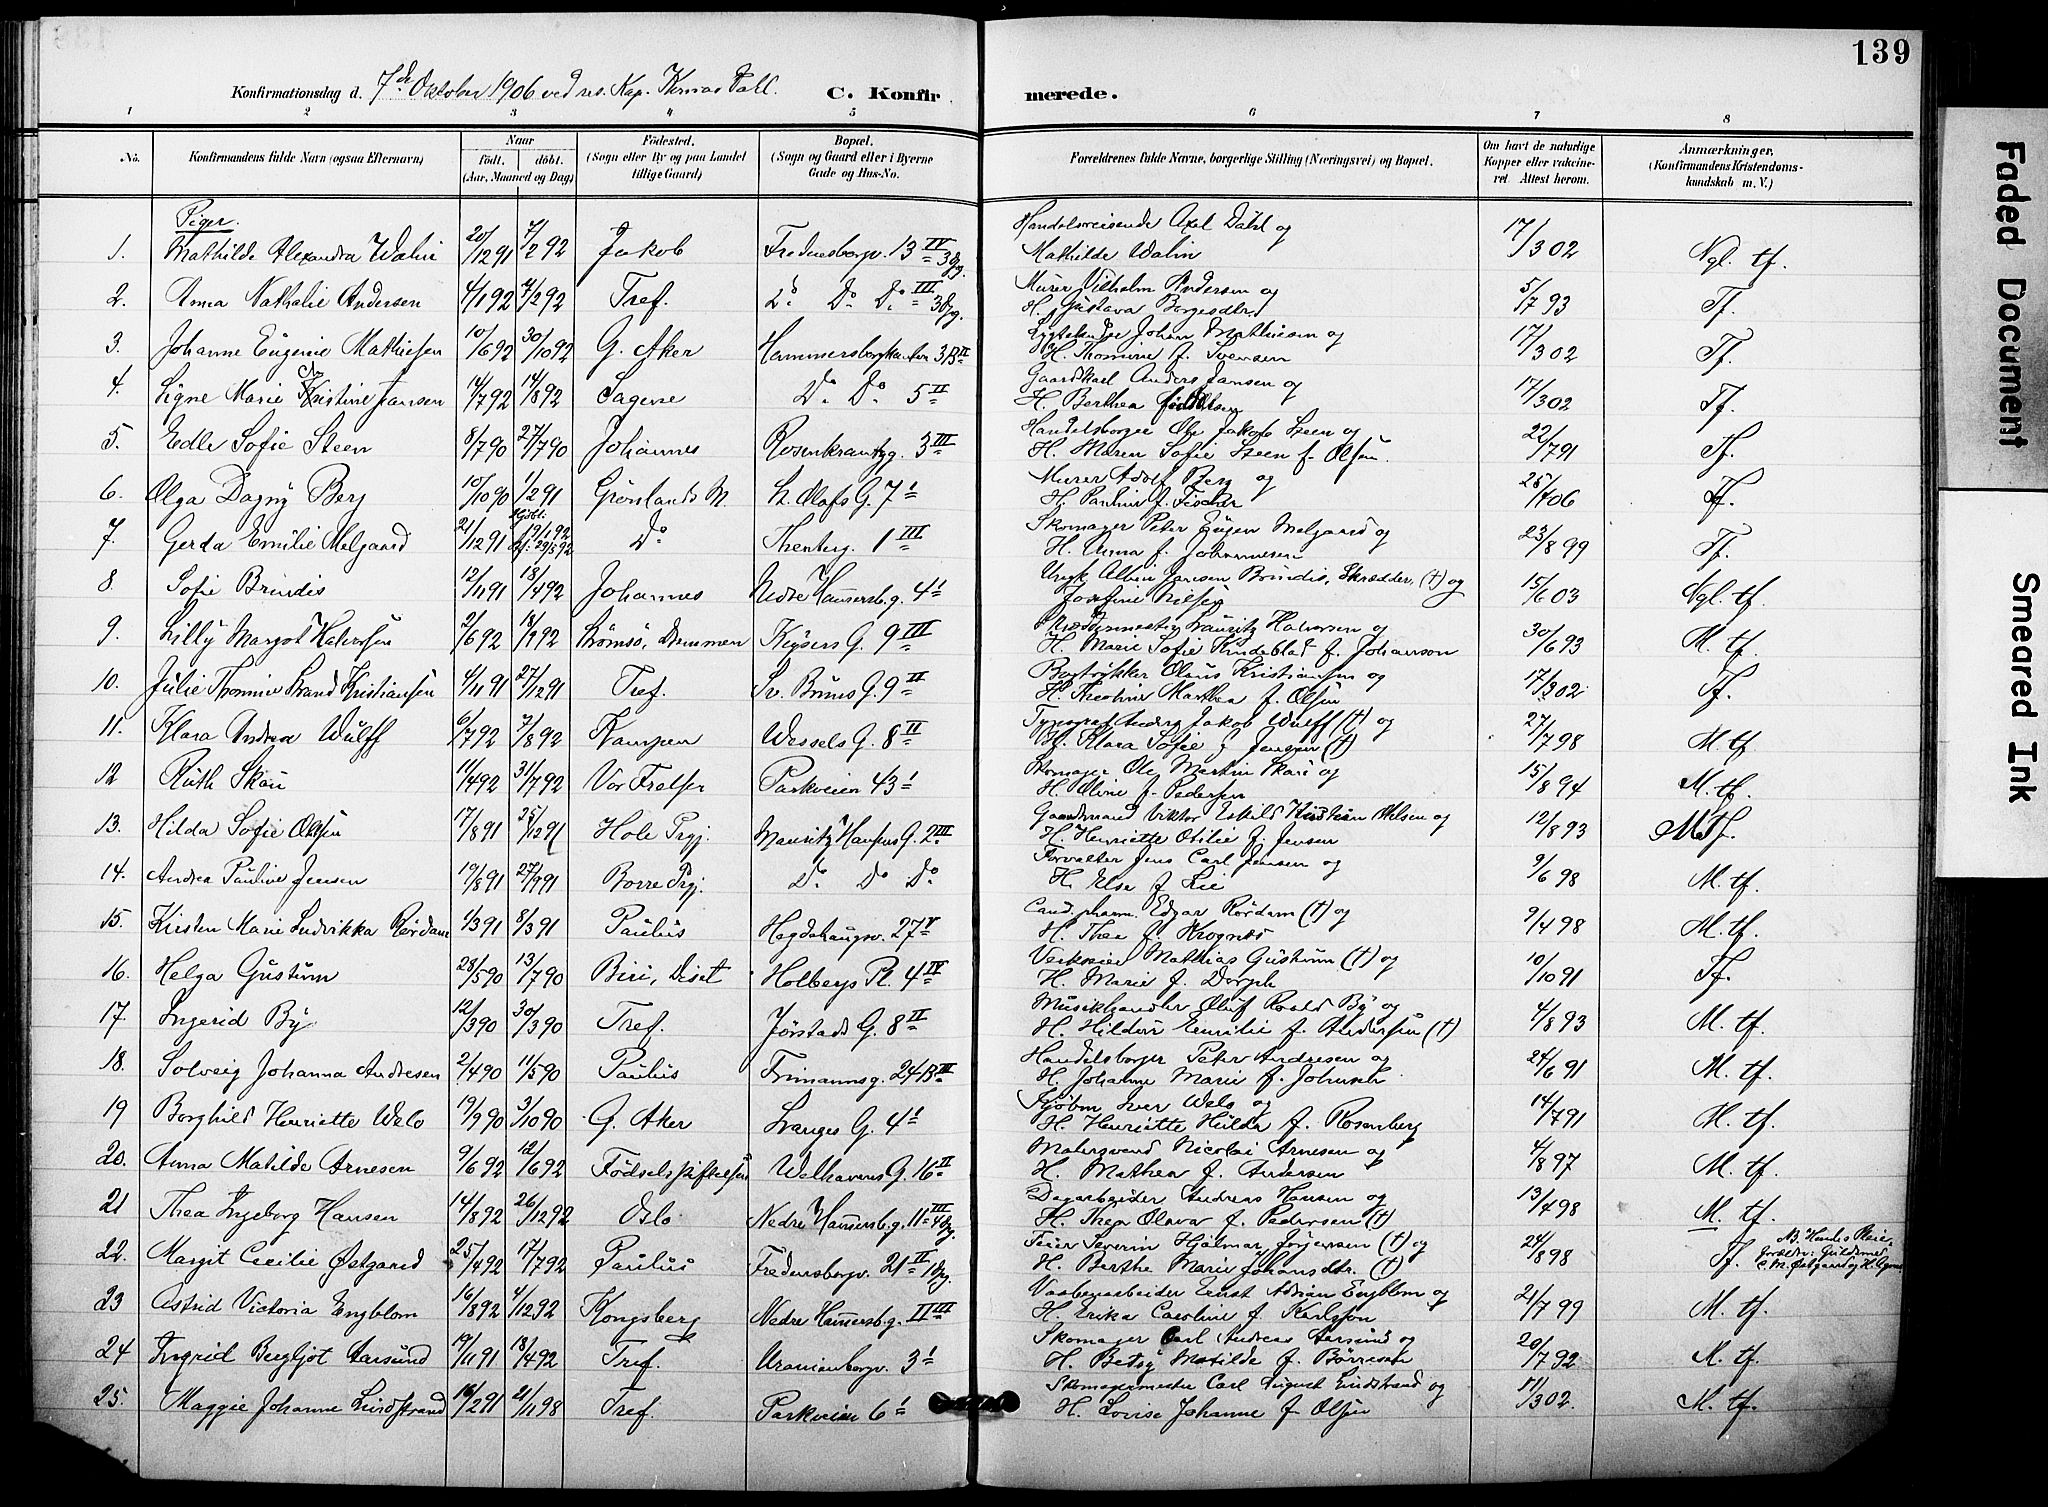 139
Konfirmationsdag d. 7de Oktober 1906 ved res. Kap. C. Konfirmerede.
1 2 3 4 5 6 7 8
No.
Konfirmandens fulde Navn (ogsaa Efternavn)
Naar
födt. döbt.
(Aar, Maaned og Dag)
Födested.
(Sogn eller By og paa Landet
tillige Gaard)
Bopæl.
(Sogn og Gaard eller i Byerne
Gade og Hus-No.
Forældrenes fulde Navne, borgerlige Stilling (Næringsvei) og Bopæl.
Om havt de naturlige
Kopper eller vakcine-
ret. Attest herom.
Anmærkninger,
(Konfirmandens Kristendoms-
kundskab m. V.)
Piger.
Handelsreisende Axel Dahl og
1. Mathilde Alexandra Walin 20/12 91 7/2 92 Jakob Fredensborgv. 13 IV 3 Opg. Mathilde Walin 17/3 02 Ngl. tf.
Murer Vilhelm Andersen og
2. Anna Nathalie Andersen 4/1 92 7/2 92 Tref. Do Do Do III 3 Opg. H. Gustava Borgesdtr. 5/7 93 Tf.
Johan Mathiesen og
3. Johanne Eugenie Mathiesen 10/6 92 30/10 92 G. Aker 3B II H. Thomine f. Iversen 17/3 02 Tf.
Gaardskarl Anders Jansen og
4. Signe Marie Kristine Jansen 14/7 92 14/8 92 Sagene Do Do 5 II H. Berthea 17/3 02 Tf.
Handelsborger Ole Jakob Steen og
5. Edle Sofie Steen 8/7 90 27/7 90 Johannes Rosenkrantzg. 3 III H. Maren Sofie Steen f. Olsen. 22/7 91 Tf.
Murer Adolf Berg og
6. Olga Dagny Berg 10/10 90 1/2 91 Grønlands M. St. Olafs G. 7 I H. Pauline f. Fischer 06 Tf.
Skomager Peter Eugen Melgaard og
7. Gerda Emilie Melgaard 21/12 91 Hjdbt. 19/1 92 29/5 92 Do 1 III H. Anna f. Johannesen 23/8 99 Tf.
Albin Jansen Brindis, Skrædder, (†) og
8 Sofie Brindis 12/11 91 18/4 92 Johannes Nedre Hammersb.g. 4 I Josefine Nilsen 15/6 03 Ngl. tf.
Lauritz Halversen og
9. Lilly Margot Halversen 2/6 92 18/9 92 Strømsø, Drammen Keysers G. 9 III H. Marie Sofie f. Johanson 30/6 93 M. tf.
Bogtrykker Olaus Kristiansen og
10. Julie Thomine Strand Kristiansen 4/11 91 27/12 91 Tref. Sv. Bruns G. 9 II H. Theoline Marthea f. Olsen 17/3 02 Tf.
Typograf Jakob Wulff (†) og
11. Klara Andrea Wulff 6/7 92 7/8 92 Kampen Wessels G. 8 II H. Klara Sofie f. Jensen (†) 27/7 98 M. tf.
Skomager Ole Martin Skau og
12 Ruth Skau 11/4 92 31/7 92 Vor Frelser Parkveien 43 I H. Oline f. Pedersen 15/8 94 M. tf.
Gaardmand Viktor Eskild Kristian Olsen og
13. Hilda Sofie Olsen 17/8 91 25/12 91 Hole Prgj. Mauritz Hansens G. 2 III H. Henriette Otilie f. Jensen 12/8 93 M. Tf.
Forvalter Jens Carl Jensen og
14. Andrea Pauline Jensen 19/8 91 27/9 91 Borre Prgj. Do Do Do H. Else f. Lie 9/6 98 M. tf.
Cand. pharm. Edgar Rørdam (†) og
15. Kirsten Marie Ludvikka Rørdam 1/3 91 8/3 91 Paulus Hegdehaugsv. 27 V H. Thea f. Krognes 9/4 98 M. tf.
Verkseier Mathias Gustum (†) og
16. Helga Gustum 28/5 90 13/7 90 Biri, Diset Holbergs Pl. 4 IV H. Marie f. Dorph 10/10 91 Tf.
Musikhandler Oluf Roald By og
17. Ingerid By 12/3 90 30/3 90 Tref. Jørstads G. 8 II H. Hildur Emilie f. Andersen (†) 4/8 93 M. tf.
Handelsborger Peter Andresen og
18. Solveig Johanna Andresen 2/4 90 11/5 90 Paulus Frimannsg. 24 B III H. Johanne Marie f. Johnsen 24/6 91 M. tf.
Iver Welo og
19 Borghild Henriette Welo 19/9 90 3/10 90 G. Aker Langes G. 4 I H. Henriette Hulda f. Rosenberg 14/7 91 M. tf.
Malersvend Nicolai Arnesen og
20. Anna Matilde Arnesen 9/6 92 12/6 92 Fødselsstiftelsen Welhavens G. 16 II H. Mathea f. Andersen 4/8 97 M. tf.
Dagarbeider Andreas Hansen og
21 Thea Ingeborg Hansen 14/8 92 26/12 92 Oslo Nedre Hammersb.g. 11 III 4 Opg. H. Thea Olava f. Pedersen (†) 13/4 98 M. tf.
Feier Severin Hjalmar Jørgensen (†) og
22. Margit Cecilie Østgaard 25/4 92 17/7 92 Paulus Fredensborgv. 21 II 1 Opg. H. Berthe Marie Johansdtr. (†) 24/8 98 Tf. NB. Hendes Pleie-
forældre: Guldsmed
C. M. Østgaard og H.
Vaabenarbeider Ernst Adrian Engblom og
23 Astrid Victoria Engblom 16/8 92 4/12 92 Kongsberg Nedre Hammersb.g. H. Erika Caroline f. Karlsson 21/7 99 M. tf.
Skomager Carl Andreas Aarsund og
24 Ingrid Bergljot Aarsund 19/11 91 18/4 92 Tref. Uranienborgv. 3 I H. Betsy Matilde f. Børresen 20/7 92 M. tf.
Skomagermester Carl August Lindstrand og
25. Maggie Johanne Lindstrand 16/2 91 21/11 98 Tref. Parkveien 6 I H. Lovise Johanne f. Olsen 11/3 02. M. tf.
Faded Document
Smeared Ink